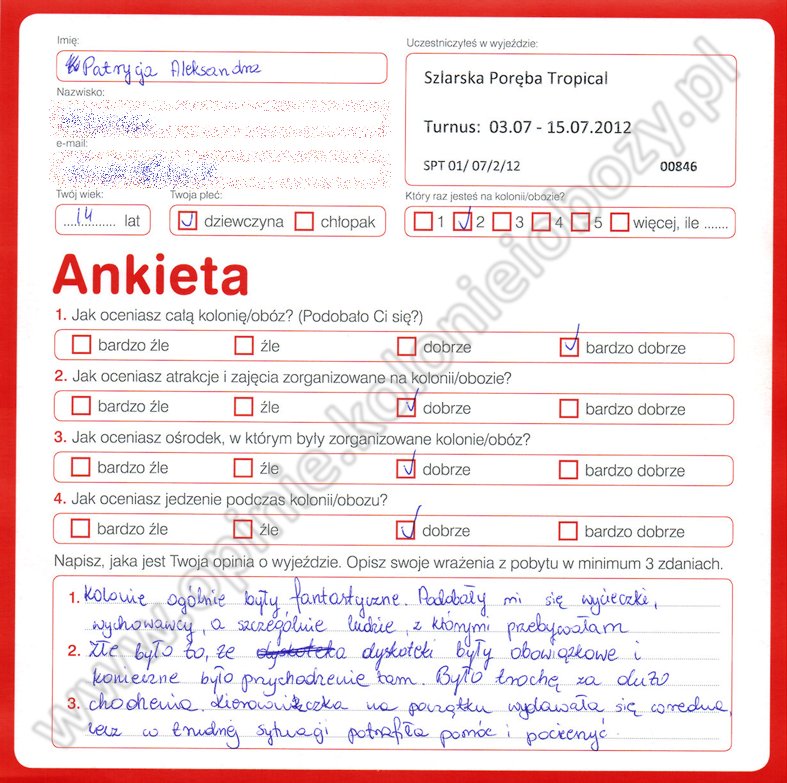 Imię:
Patrycja Aleksandra
Uczestniczyłeś w wyjeździe:
Szlarska Poręba Tropical
Turnus: 03.07 - 15.07.2012
SPT 01/ 07/2/12 00846
Nazwisko:
e-mail:
Twój wiek:
14 lat
Twoja płeć:
dziewczyna chłopak
Który raz jesteś na kolonii/obozie?
1 2 3 4 5 więcej, ile .......
Ankieta
1. Jak oceniasz całą kolonię/obóz? (Podobało Ci się?)
bardzo źle źle dobrze bardzo dobrze
2. Jak oceniasz atrakcje i zajęcia zorganizowane na kolonii/obozie?
bardzo źle źle dobrze bardzo dobrze
3. Jak oceniasz ośrodek, w którym były zorganizowane kolonie/obóz?
bardzo źle źle dobrze bardzo dobrze
4. Jak oceniasz jedzenie podczas kolonii/obozu?
bardzo źle źle dobrze bardzo dobrze
Napisz, jaka jest Twoja opinia o wyjeździe. Opisz swoje wrażenia z pobytu w minimum 3 zdaniach.
1. Kolonie ogólnie były fantastyczne. Podobały mi się wycieczki,
wychowawcy, a szczególnie ludzie, z którymi przebywałam
2. Złe było to, że dyskoteki były obowiązkowe i
konieczne było przychodzenie tam. Było trochę za dużo
3. chodzenia. Kierowniczka na początku wydawała się wredna,
lecz w trudnej sytuacji potrafiła pomóc i pocieszyć.
www.opinie.kolonieiobozy.pl